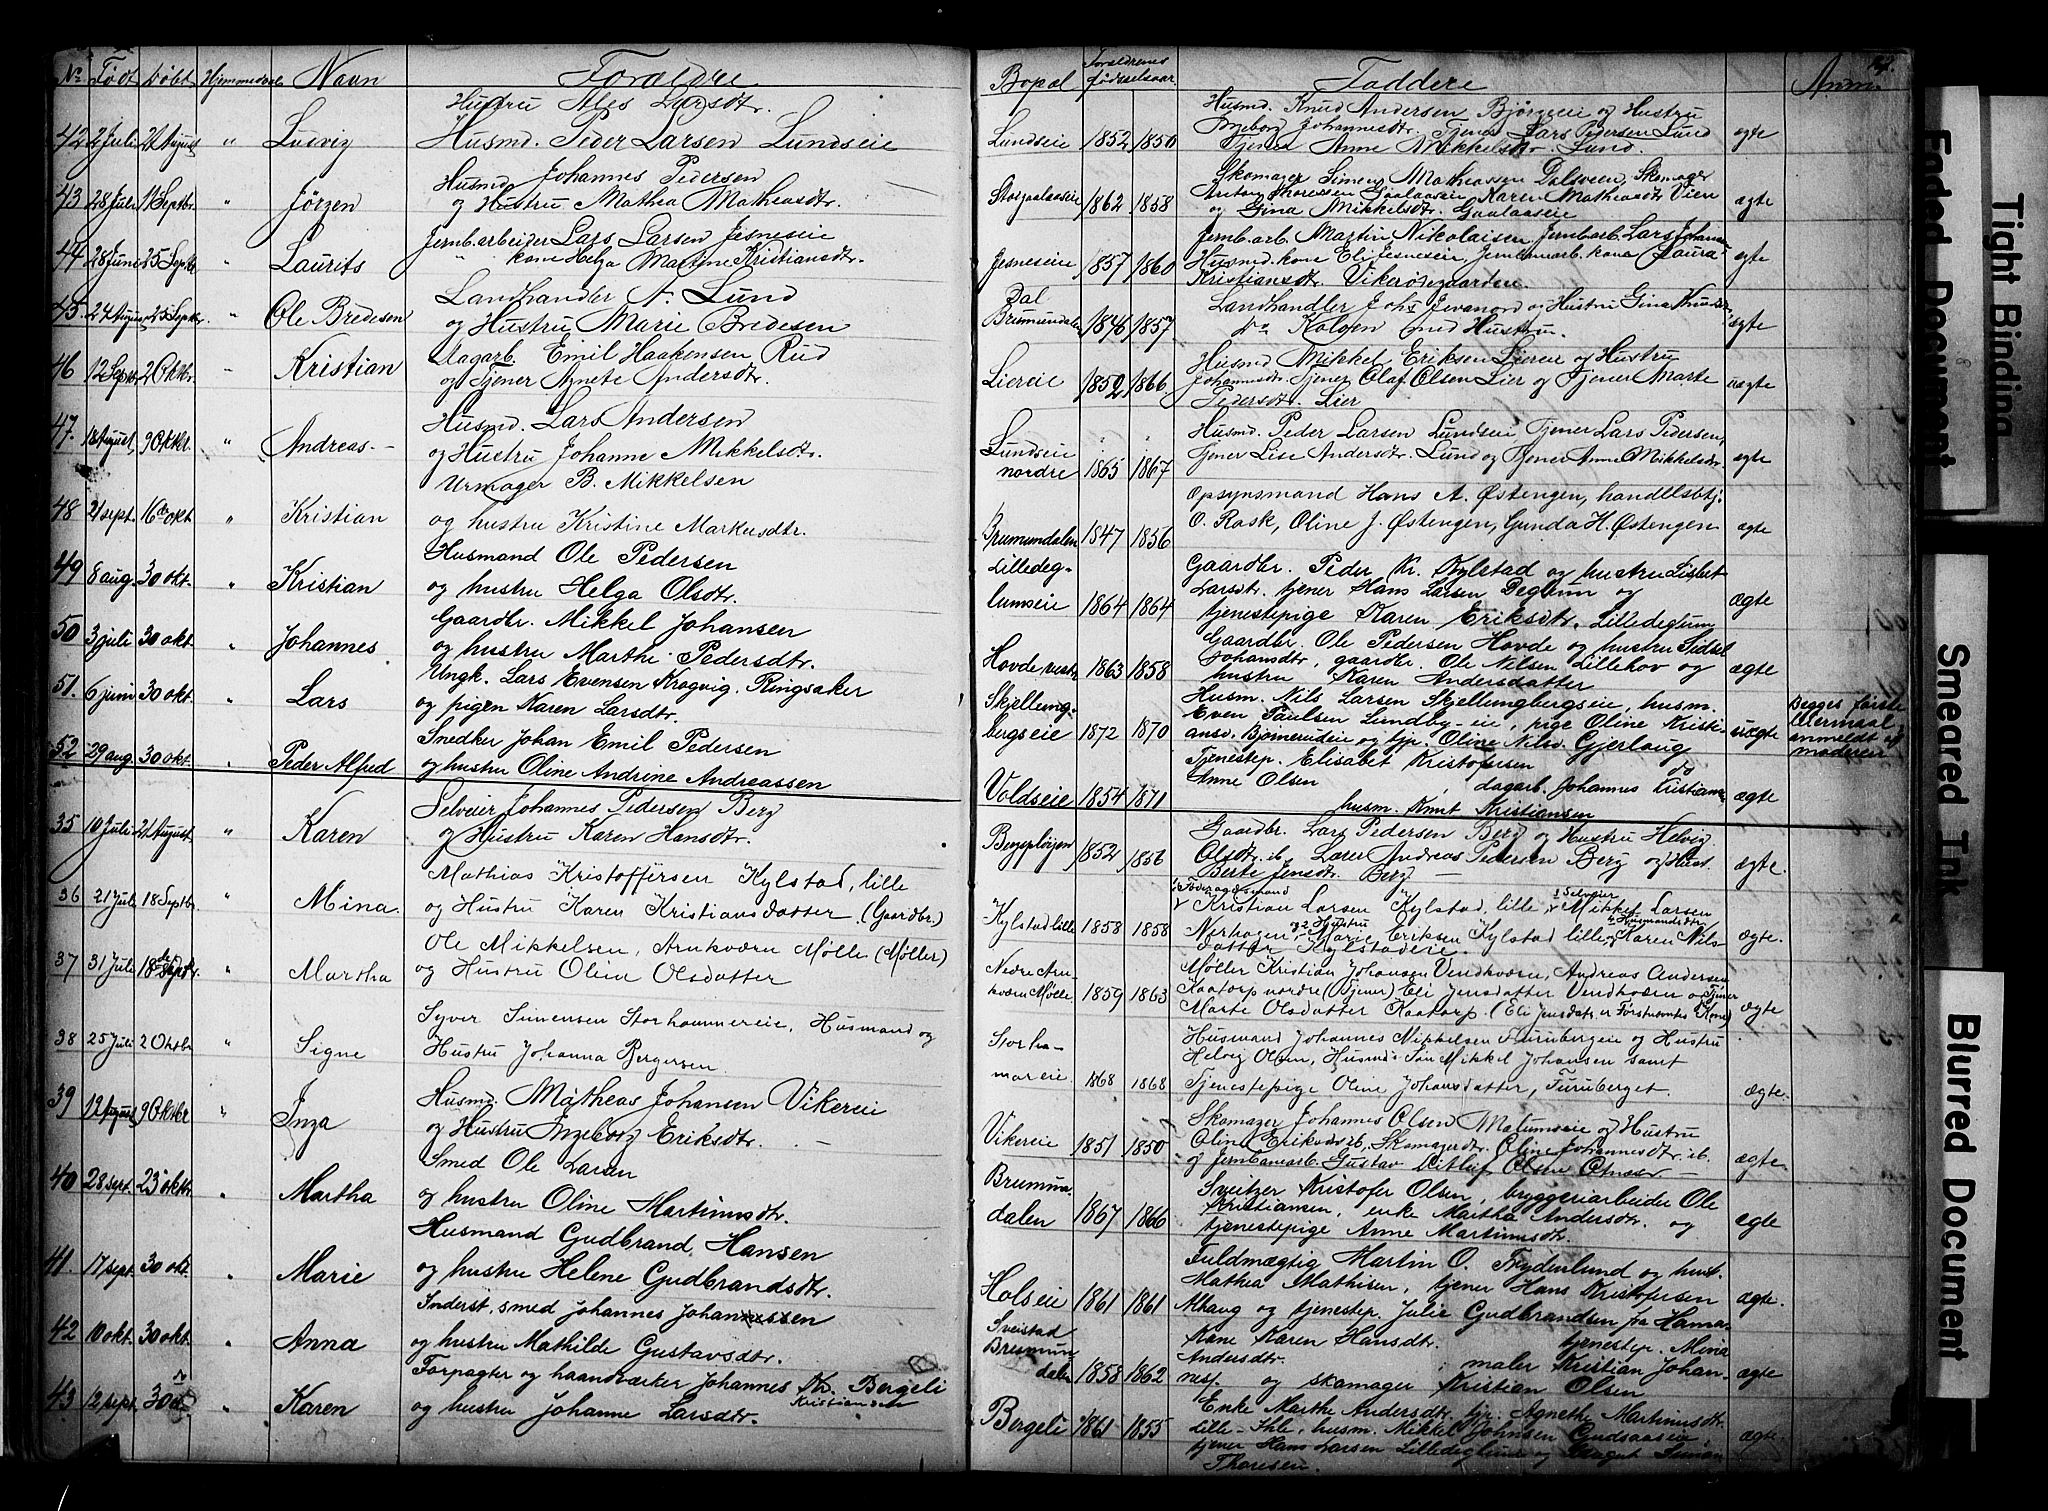 No Født Døbt Hjemmedøbt Navn Forældre
42 2 Juli 21 August " Ludvig Hustru Ales Larsdtr.
Husmd. Peder Larsen Lundseie
43 28 Juli 11 Septbr. " Jörgen Husmd Johannes Pedersen
og Hustru Mathea Matheasdtr.
44 28 June 25 Septbr. " Laurits Jernb.arbeider Lars Larsen Jesneseie
" kone Helga Martine Kristiansdtr.
45. 24 August 25 Septbr. " Ole Bredesen Landhandler A. Lund
og Hustru Marie Bredesen
46 12 Septbr. 2 Oktbr. " Kristian Dagarb. Emil Haakensen Rud
og Tjener Agnete Andersdtr.
47. 18 August 9 Oktbr. " Andreas - Husmd. Lars Andersen
og Hustru Johanne Mikkelsdtr.
48 21 sept. 16de okt " Kristian Urmager B. Mikkelsen
og hustru Kristine Markusdtr.
49 8 aug. 30 okt. " Kristian Husmand Ole Pedersen
og hustru Helga Olsdtr.
50 3 juli 30 okt. " Johannes Gaardbr. Mikkel Johansen
og hustru Marthe Pedersdtr.
51. 6 juni 30 okt. " Lars Ungk. Lars Evensen Kragvig. Ringsaker
og pigen Karen Larsdtr.
52 29 aug. 30 okt. " Peder Alfred Snedker Johan Emil Pedersen
og hustru Oline Andrine Andreassen
35 10 Juli 21 August " Karen Selveier Johannes Pedersen Berg
og Hustru Karen Hansdtr.
36 21 Juli 18 Septbr. " Mina. Mathias Kristoffersen Kylstad, lille
og Hustru Karen Kristiansdatter (Gaardbr.)
37 31 Juli 18de Septbr. " Martha Ole Mikkelsen, Arnkværn Mølle (Møller)
og Hustru Oline Olsdatter
38 25 Juli 2 Oktbr " Signe Syver Simensen Storhammereie, Husmand og
Hustru Johanna Bergersen.
39 12 August 9 Oktbr " Inga Husmd. Matheas Johansen Vikereie
og Hustru Ingeborg Eriksdtr. -
40 28 sept. 23 oktbr " Martha Smed Ole Larsen
og hustru Oline Martinusdtr.
41. 17 sept. 30 okt. " Marie Husmand Gudbrand Hansen
og hustru Helene Gudbrandsdtr.
42 10 okt. 30 okt. " Anna Inderst, smed Johannes Johanssen
og hustru Mathilde Gustavsdtr.
43 12 sept. 30 " Karen Forpagter og haandværker Johannes Kr. Bergeli
Kristiansen
og hustru Johanne Larsdtr.
Bopæl Forældrenes fødselsaar Faddere Anm.
Lundseie 1852 1850 Husmd. Knud Andersen Bjørgeeie og Hustru
Ingeborg Johannesdtr. Tjener Lars Pedersen Lund
Tjener Anne Mikkelsdtr. Lund. ægte
Storgaalaaseie 1862 1858 Skomager Simen Matheassen Dalsveen, Skomager
Anton Thoresen Gaalaaseie, Karen Matheasdtr Vien
og Gina Mikkelsdtr. Gaalaaseie ægte
Jesneseie 1857 1860 Jernb.arb. Martin Nikolaisen Jernb.arb. Lars Johans
Husmd. kone Eli Jesneseie, Jernbanearb. kone Laura
Kristiansdtr. Vikerødegaarden. ægte
Dal
Brumundalen 1846 1857 Landhandler Johs Jevanord og Hustru Gina Knudsen
do Kolgen med Hustru. ægte
Liereie 1852 1866 Husmd. Mikkel Eriksen Liereie og Hustru
Johannesdtr. Tjener Olaf Olsen Lier og Tjener Marte
Pedersdtr. Lier uægte
Lundseie
nordre 1865 1867 Husmd. Peder Larsen Lundseie, Tjener Lars Pedersen,
Tjener Lise Andersdtr. Lund og Tjener Anne Mikkelsdtr. ægte
Brumundalen 1847 1856 Opsynsmand Hans A. Østengen, handelsbtj.
O. Rask, Oline J. Østengen, Gunda H. Østengen ægte
Lilledeg-
lumseie 1864 1864 Gaardbr. Peder Kr. Kylstad og hustru Lisbet
Larsdtr. tjener Hans Larsen Deglum og
tjenestepige Karen Eriksdtr. Lilledeglum ægte
Hovde vestr. 1863 1858 Gaardbr. Ole Pedersen Hovde og hustru Sidsel
Johansdtr, gaardbr. Ole Nilsen Lillehov og
hustru Karen Andersdatter ægte
Skjellung-
bergseie 1872 1870 Husm. Nils Larsen Skjellungbergseie, husm.
Even Paulsen Lundby-eie, pige Oline Kristi-
ansd. Bjørnerudeie og tjp. Oline Nilsd. Gjerlaug uægte Begges første
leiermaal
anmeldt af
moderen
Voldseie 1854 1871 Tjenestep. Elisabet Kristofersen do
Anne Olsen, dagarb. Johannes Kristians.
husm. Knut Kristiansen ægte
Bergspløien 1852 1856 Gaardbr. Lars Pedersen Berg og Hustru Helvig
Olsdtr. ib, Lærer Andreas Pedersen Berg og Hust.
Berte Jensdtr. Berg - ægte.
Kylstad lille 1858 1858 Kristian Larsen Kylstad, lille, 3 Selveier Mikkel Larsen
Nerhagen, og 2 Hustru Marie Eriksen Kylstad lille, 4 Husmandsdtr Karen Nils-
datter Kylstadeie. ægte.
Nedre Arn-
kværn Mølle 1859 1863 Møller Kristian Johansen Vendkværn, Andreas Andersen
Kaatorp nordre (Tjener) Eli Jensdatter Vendkværn og Tjener
Marte Olsdatter Kaatorp. (Eli Jensdatr. er Førstnævntes Kone) ægte
Storha-
mareie 1868 1868 Husmand Johannes Mikkelsen Furubergeie og Hustru
Helvig Olsen, Husmds Søn Mikkel Johansen samt
Tjenestepige Oline Johansdatter, Furuberget. ægte.
Vikereie 1851 1850 Skomager Johannes Olsen Matumseie og Hustru
Oline Eriksd. ib, Skomagerdtr. Oline Johannesdtr. ib.
og Jernbanearb. Gustav ægte.
Brumun-
dalen 1867 1866 Sveitzer Kristofer Olsen, bryggeriarbeider Ole
Kristiansen, enke Martha Andersdtr. og
tjenestepige Anne Martinusdtr. ægte
Holseie 1861 1861 Fuldmægtig Martin O. Frydenlund og hust.
Mathea Mathisen, tjener Hans Kristofersen
Alhaug og tjenestep. Julie Gudbrandsen fra Hama- ægte.
Sveistad
Brumun-
dalen 1858 1862 Kone Karen Hansdtr. tjenestep. Mina
Andersdtr. ; maler Kristian Johan-
nes. og skomager Kristian Olsen ægte
Bergeli 1861 1855 Enke Marthe Andersdtr. tjp. Agnethe Martinusdtr.
Lille-Ihle, husm. Mikkel Johnsen Gudsaaseie
tjener Hans Larsen Lilledeglum og Simon
Thoresen. ægte.
Faded Document
Tight Binding
Smeared Ink
Blurred Document